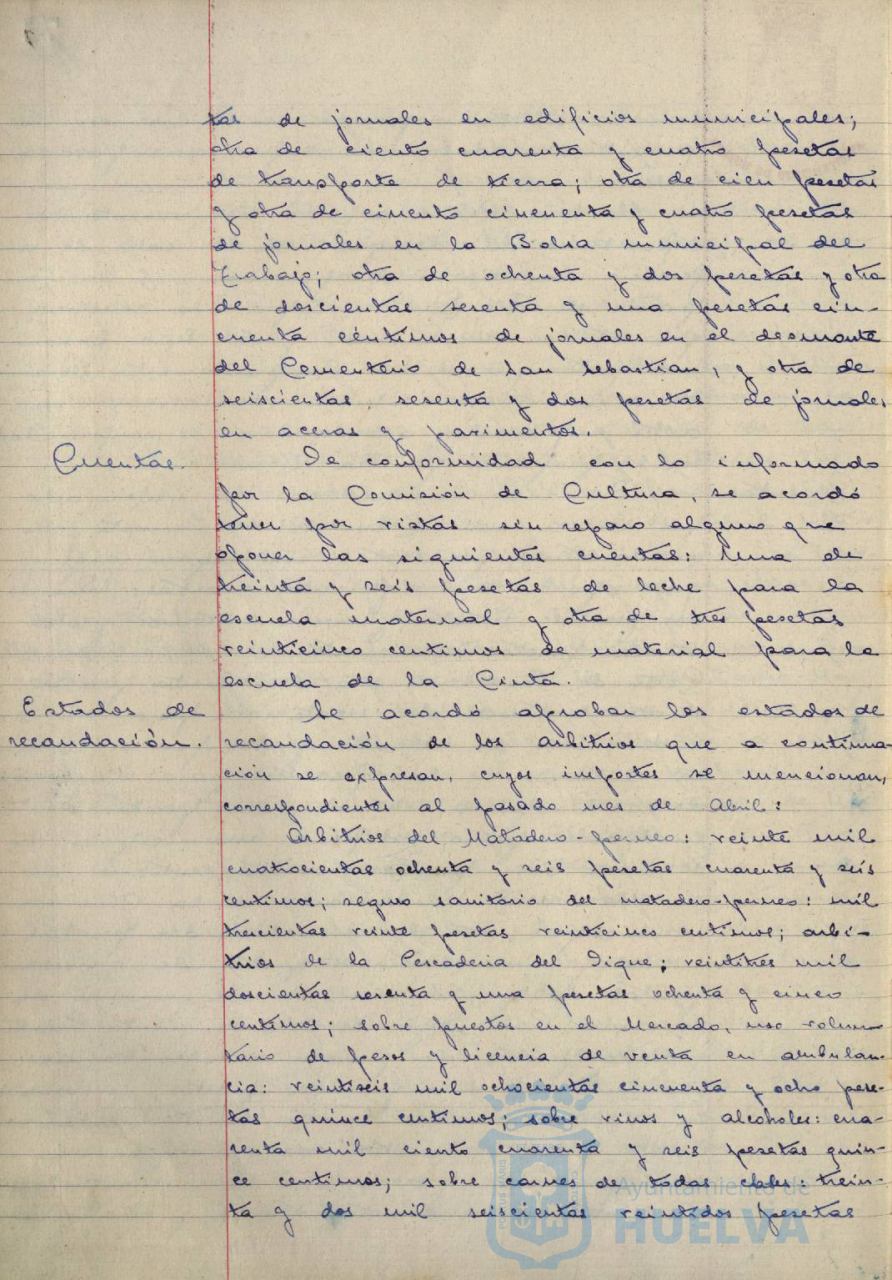 tas de jornales en edificios municipales;
otra de ciento cuarenta y cuatro pesetas
de transporte de tierra; otra de cien pesetas
y otra de cincento cincuenta y cuatro pesetas
de jornales en la Bolsa municipal del
Trabajo; otra de ochenta y dos pesetas y otra
de doscientas sesenta y una pesetas cin-
cuenta céntimos de jornales en el desmonte
del Cementerio de San Sebastian, y otra de
seiscientas sesenta y dos pesetas de jornales
en aceras y pavimentos.
Cuentas.
De conformidad con lo informado
por la Comisión de Cultura, se acordó
tener por vistas sin reparo alguno que
oponer las siguientes cuentas: Una de
treinta y seis pesetas de leche para la
escuela maternal y otra de tres pesetas
veinticinco centimos de material para la
escuela de la Cinta.
Estados de
recaudación.
Se acordó aprobar los estados de
recaudación de los arbitrios que a continua-
ción se expresan, cuyos importes se mencionan,
correspondientes al pasado mes de Abril:
Arbitrios del Matadero-perneo: veinte mil
cuatrocientas ochenta y seis pesetas cuarenta y seis
centimos; seguro sanitario del matadero-perneo: mil
trescientas veinte pesetas veinticinco centimos; arbi-
trios de la Pescaderia del Dique; veintitres mil
doscientas sesenta y una pesetas ochenta y cinco
centimos; sobre puestos en el Mercado, uso volun-
tario de pesos y licencia de venta en ambulan-
cia: veintiseis mil ochocientas cincuenta y ocho pese-
tas quince centimos; sobre vinos y alcoholes: cua-
renta mil ciento cuarenta y seis pesetas quin-
ce centimos; sobre carnes de todas clases: trein-
ta y dos mil seiscientas veintidos pesetas
Ayuntamiento de
HUELVA